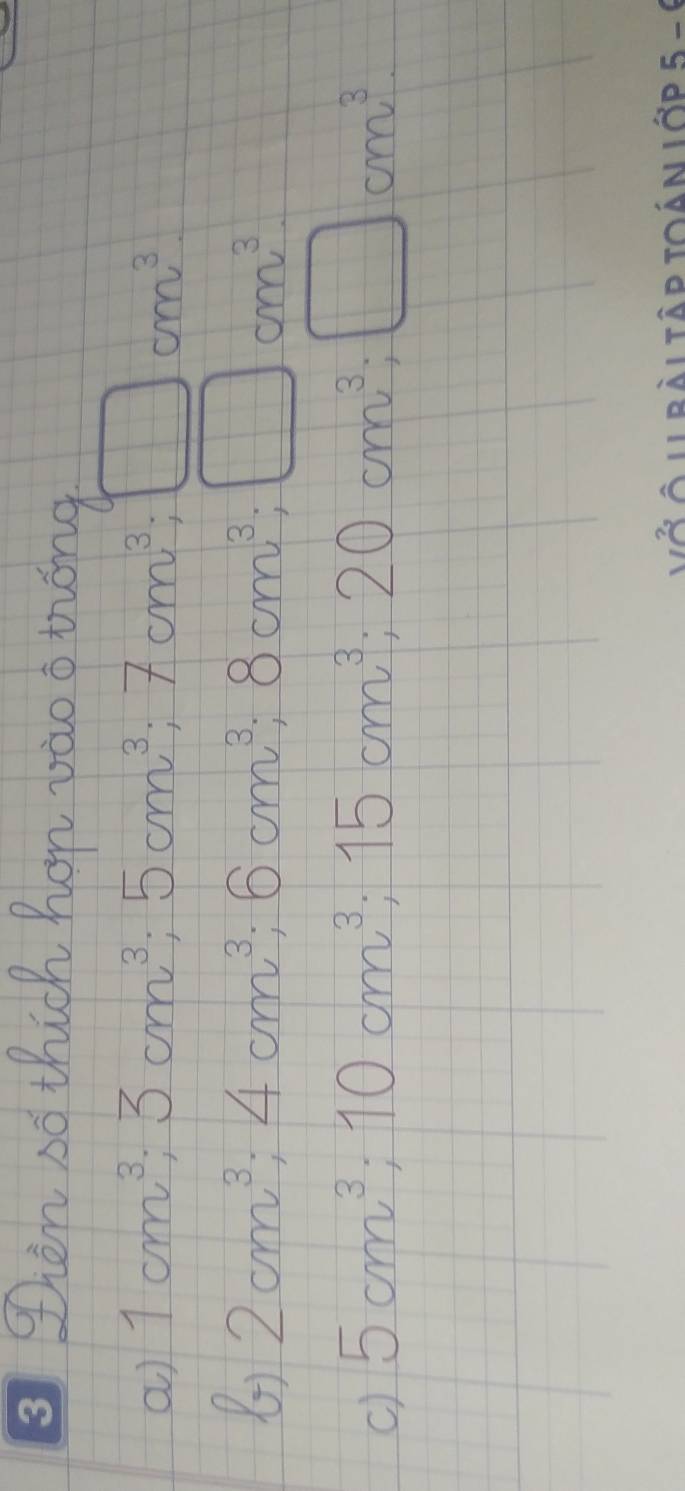 3 Điền số thích hợp vào ô trống.
a) 1 cm³; 3 cm³; 5 cm³; 7 cm³; cm³.
b) 2 cm³; 4 cm³; 6 cm³; 8 cm³; cm³.
c) 5 cm³; 10 cm³; 15 cm³; 20 cm³; cm³.
VỞ Ô LI BÀI TẬP TOÁN LỚP 5 -